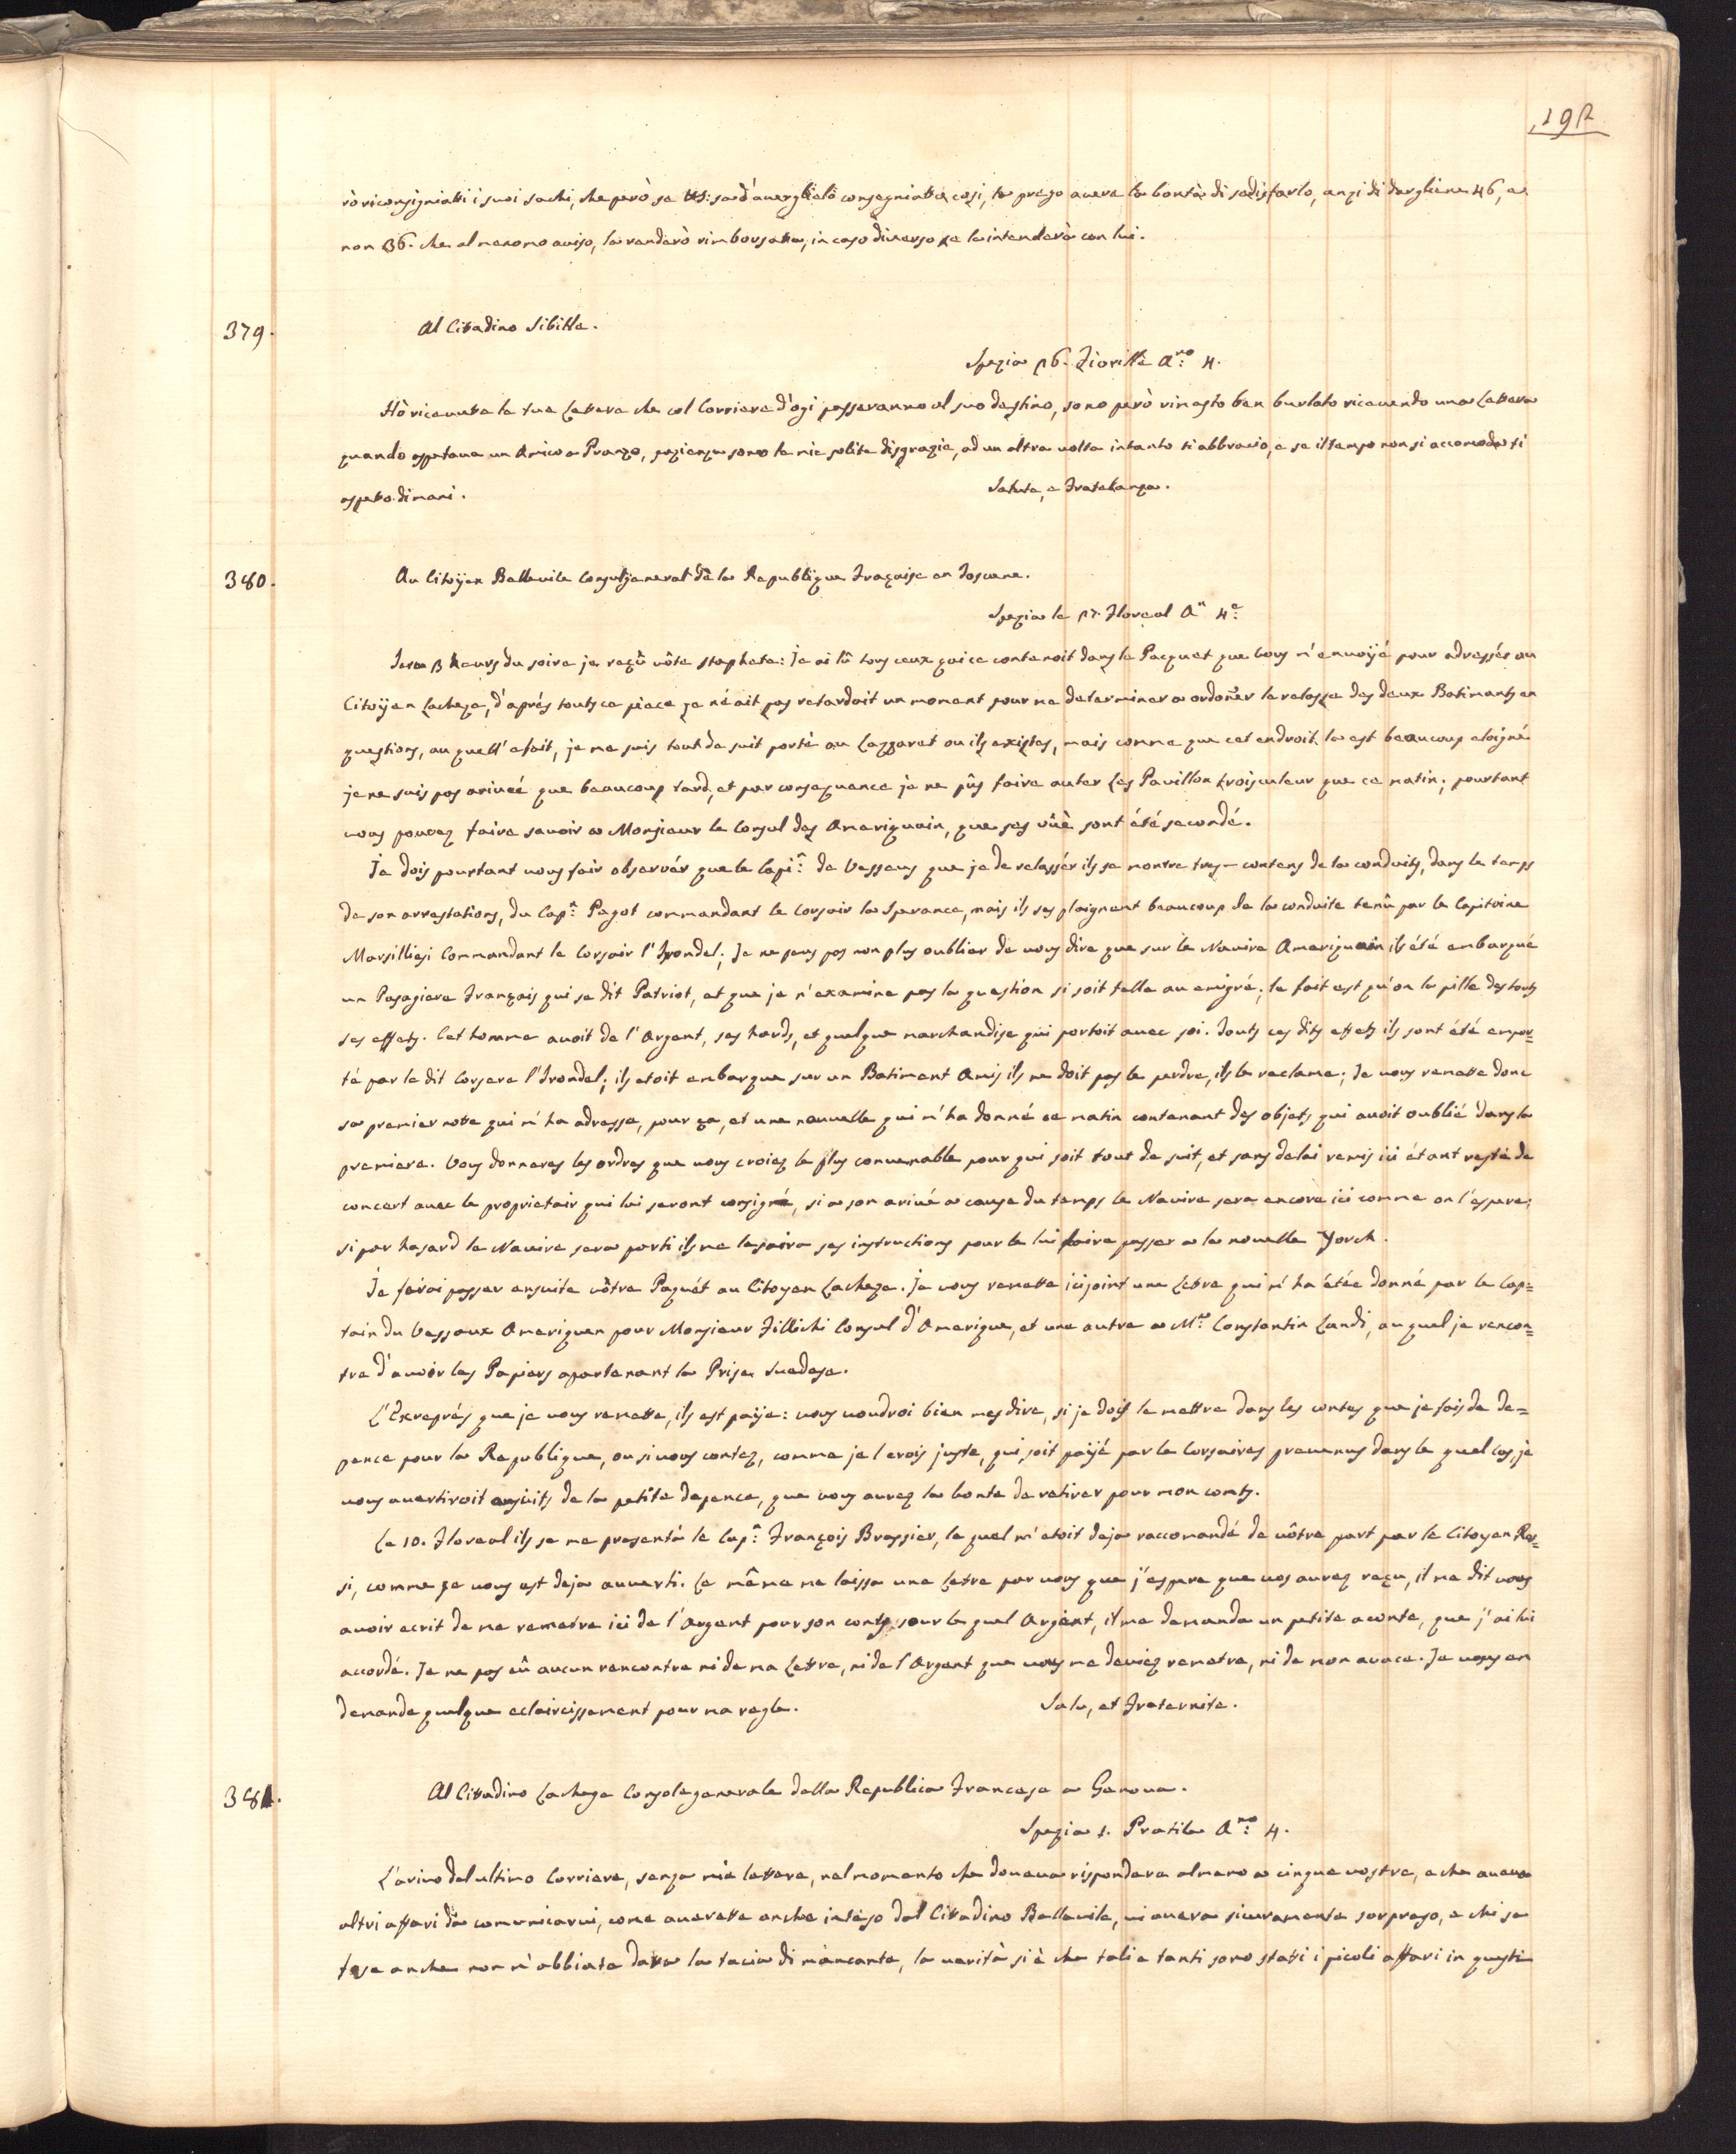 192
rò riconsigniatti i suoi sachi, che però se VS: sa d'averglielò consegniatta così, la prego avere la bontà di sodisfarlo, anzi di dargliene 46, e
non 36. che al menomo aviso, la renderò rimborsatta, in caso diverso se la intenderà con lui.
379. Al Cittadino Sibilla.
Spezia 16. Fiorille A.no 4.
Hò ricevutta la tua Lettera che col Corriere d'ogi passeranno al suo destino, sono però rimasto ben burlato ricevendo una Lettera
quando aspetava un Amico a Pranzo, pazienza sono le mie solite disgrazie, ad un altra volta intanto ti abbracio, e se il tempo non si accomoda ti
aspetto dimani. Salute, e Fratelanza.
380. Au Citoÿen Bellevile Consul general de la Republique Fraçaise en Toscane.
Spezia le 17. Floreal A.n 4.e
sur 3 heurs du soire je reçû vôte staphete: Je ai lû tous ceux qui ce contenoit dans le Pacquet que vous m'envoijé pour adressés au
Citoijen Lacheze, d'aprés touts ce piece je né ait pas retardoit un moment pour me determiner a ordoner le relasse des deux Batimants en
questions, au quell' efait, je me suis tout de suit portè au Lazzaret ou ils existes, mais comme que cet endroit la est beaucoup eloigné
je ne suis pas arivéé que beaucoup tard, et par consequence je ne pûs faire auter les Pavillon troisculeur que ce matin; pourtant
vous pouvez faire savoir a Monsieur le Consul des Ameriquain, que ses vûê sont été secondé.
Je dois pourtant vous fair observér que le Capi.n de Vesseus que je de relassér ils se montre tres-contens de la conduits, dans le temps
de son arrestations, du Cap.n Pagot commandant le Corsair la Sperance, mais ils ses plaignent beaucoup de la conduite tenû par le Capitaine
Marsilliesi Commandant le Corsair l'Irondel; Je ne peus pas non plus oublier de vous dire que sur le Navire Ameriquain ils été embarqué
un Pasagiere Français qui se dit Patriot, et que je n'examine pas la question si soit telle au emigré; le fait est qu'on la pille des touts
ses effets. Cet homme avoit de l'Argent, ses hards, et quelque marchandise qui portoit avec soi. Touts ces dits effets ils sont été empor=
té par le dit Corsere l'Irondel; ils etoit embarque sur un Batiment Amis ils ne doit pas le perdre, ils le reclame; Je vous remette donc
sa premier notte qui m'ha adresse, pour ça, et une nouvelle qui m'ha donné ce matin contenant des objets qui avoit oublié dans la
premiere. Vous donneres les ordres que vous croiez le plus convenable pour qui soit tout de suit, et sans delai remis ici étant resté de
concert avec le proprietair qui lui seront consigné, si a son arivé a cause du temps le Navire sera encore ici comme on l'espere;
si par hasard le Navire sera parti ils me lesaira ses instructions pour le lui faire passer a la nouvelle Yorch.
Je ferai passer ensuite vôtre Paquét au Citoyen Lacheze. Je vous remette icijoint une Lettre qui m'ha étée donné par le Cap=
tain du Vesseaux Ameriquen pour Monsieur Fillichi Consul d'Amerique, et une autre a M.r Constantin Landi, au quel je rencon=
tre d'avoir les Papiers apartenant la Prise Suedese.
L'Exreprés que je vous remette, ils est paije: vous voudroi bien mes dire, si je dois le mettre dans les contes que je fais de de=
pence pour la Republique, ou si vous contez, comme je l crois juste, qui soit paijé par le Corsaires prevenus dans le quel cas, je
vous avertiroit ensuits de la petite depence, que vous aurez la bonte de retirer pour mon conts.
Le 10. Floreal ils se me presentà le Cap.n François Brassier, le quel m'etoit deja raccomandé de vôtre part par le Citoyen Ros=
si, comme je vous est deja avverti. Le même me laissa une Lettre par vous que j'espere que vos aurez reçu, il me dit vous
avoir ecrit de me remetre ici de l'Argent pour son conts, sour le quel Argent, il me demanda un petite aconte, que j'ai lui
accordé. Je ne pas eû aucun rencontre ni de ma Lettre, ni de l'Argent que vous me deviez remetre, ni de mon avace. Je vous en
demande quelque eclaircissement pour ma regle. Salu, et Fraternite.
381. Al Cittadino Lacheze Console generale della Republica Francese a Genova.
Spezia 1. Pratile A.no 4.
L'arivo del ultimo Corriere, senza mie lettere, nel momento che doveva rispondere almeno a cinque vostre, e che aveva
altri affari da comunicarvi, come averette anche inteso dal Cittadino Bellevile, vi averà sicuramente sorpreso, e chi sa
fose anche non m'abbiate datta la tacia di mancante, la verità si è che tali e tanti sono statti i picoli affari in questi